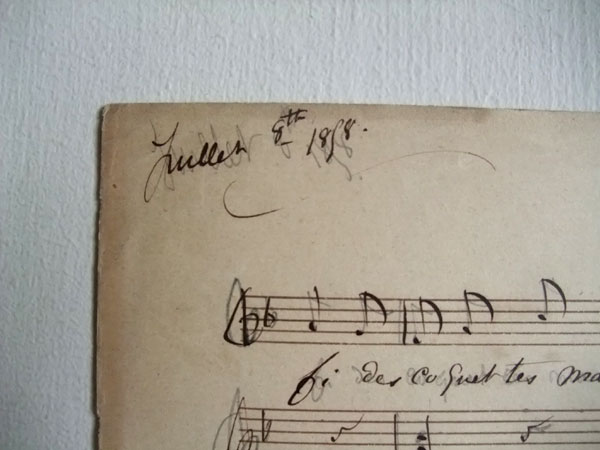 Juillet 8th 1858.
fi des coquettes ma